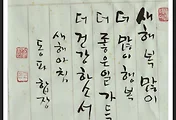 새해 복 많이
더 많이 행복
더 좋은 일 가득
더 건강하소서
새해 아침
동파 합장